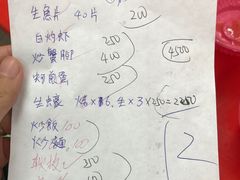 生魚片 40片 200
白灼虾 250
炒蟹腳 400
4500
蚵肉蛋 250
生蠔 烤×6. 生×3×250=2250
炒飯 100
炒麵 100
250
2